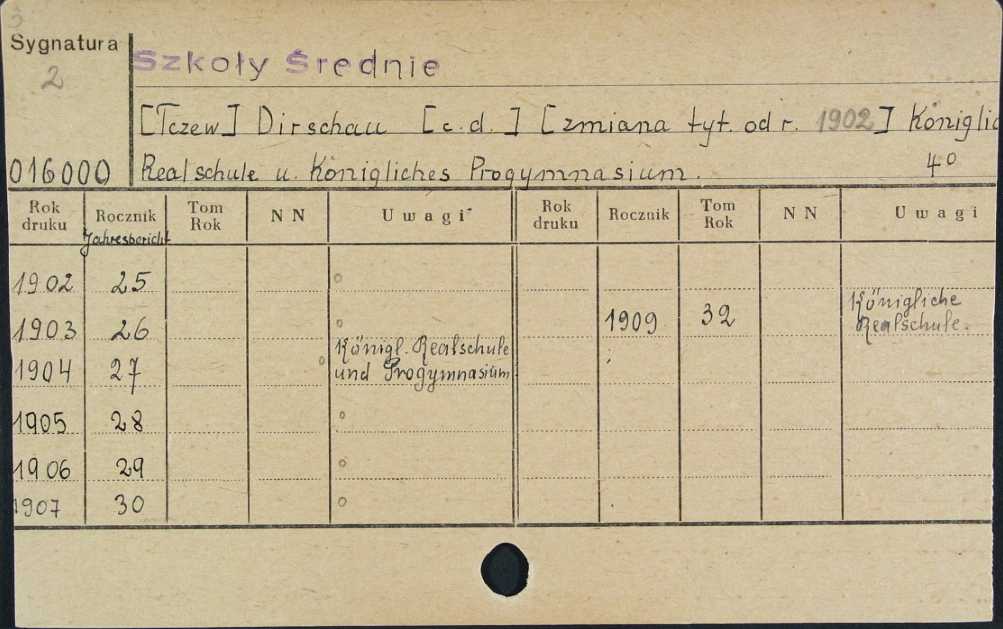 3
Sygnatura
2
Szkoły Średnie
[Tczew] Dirschau [c.d.] [zmiana tyt. od r. 1902] Königlic
016000 Realschule u. Königliches Progymnasium. 4°
Rok druku Rocznik Tom Rok N N Uwagi Rok druku Rocznik Tom Rok N N Uwagi
Jahresbericht
1902 25 °
1903 26 ° 1909 32 Königliche Realschule.
1904 27 ° Königl. Realschule und Progymnasium
1905 28 °
1906 29 °
1907 30 °